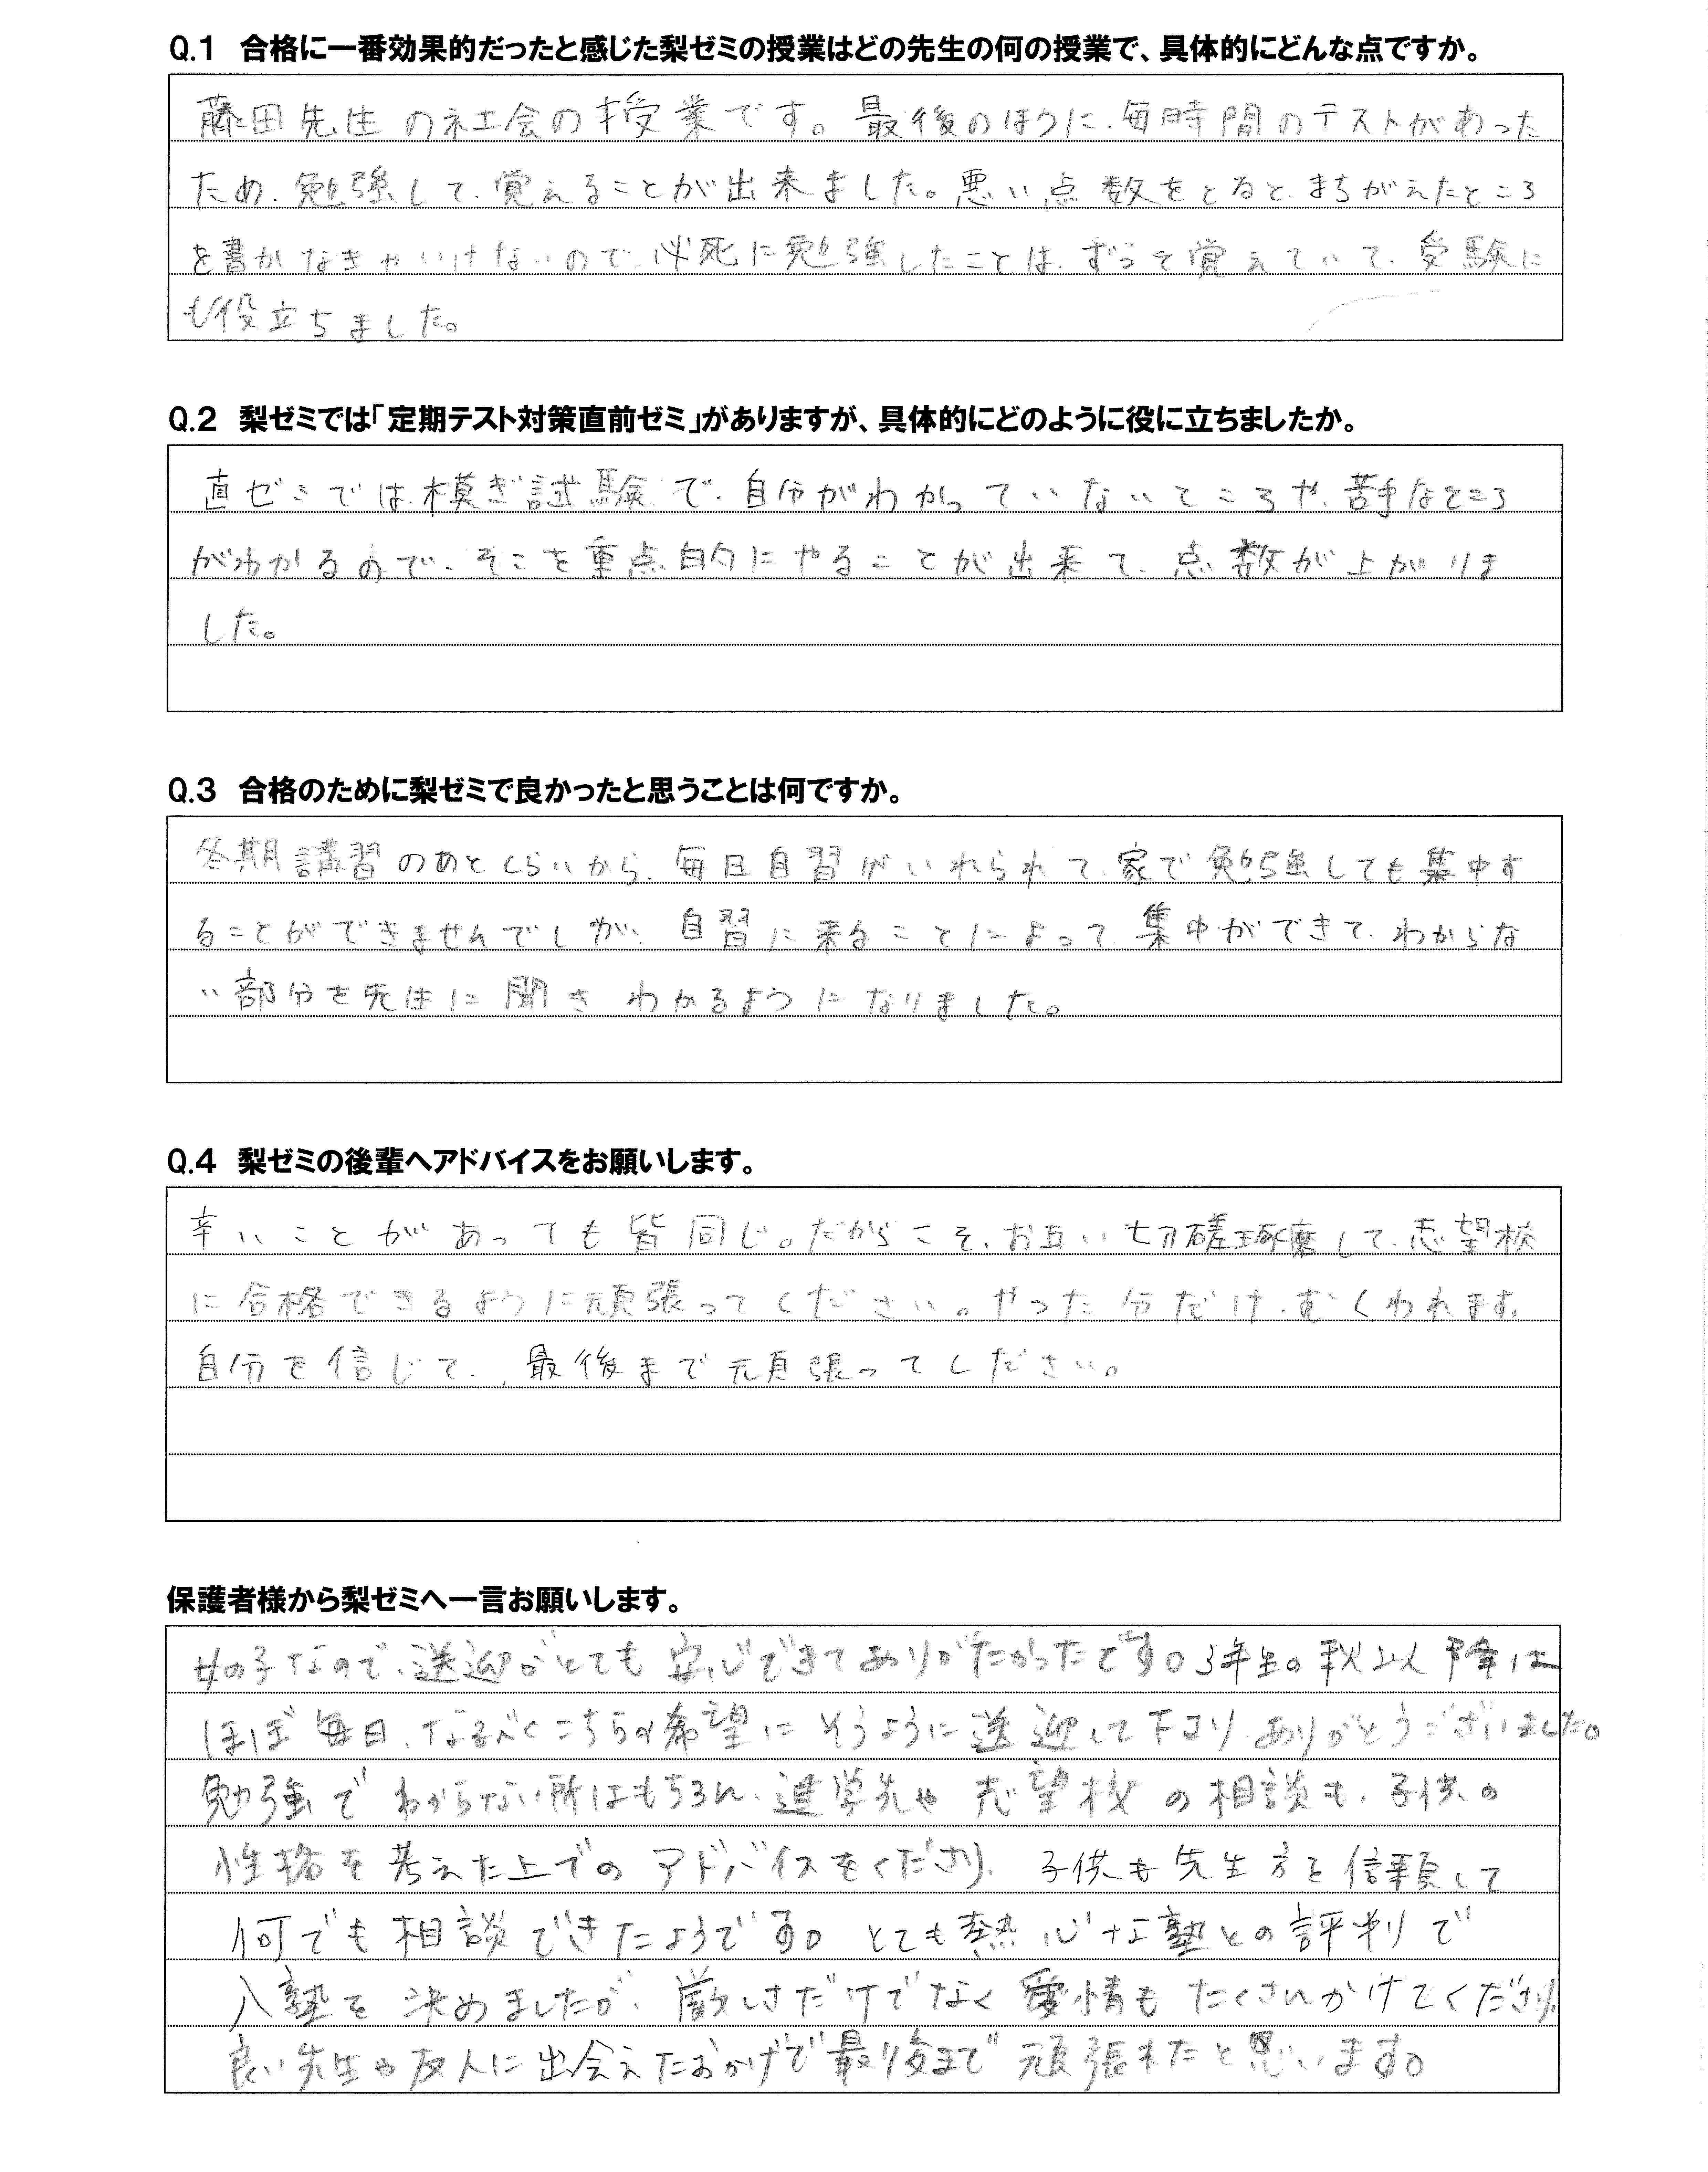 Q.1 合格に一番効果的だったと感じた梨ゼミの授業はどの先生の何の授業で、具体的にどんな点ですか。
藤田先生の社会の授業です。最後のほうに、毎時間のテストがあった
ため、勉強して、覚えることが出来ました。悪い点数をとると、まちがえたところ
を書かなきゃいけないので、必死に勉強したことは、ずっと覚えていて、受験に
も役立ちました。
Q.2 梨ゼミでは「定期テスト対策直前ゼミ」がありますが、具体的にどのように役に立ちましたか。
直ゼミでは、模ぎ試験で、自分がわかっていないところや、苦手なところ
がわかるので、そこを重点的にやることが出来て、点数が上がりま
した。
Q.3 合格のために梨ゼミで良かったと思うことは何ですか。
冬期講習のあとくらいから、毎日自習がいれられて、家で勉強しても集中す
ることができませんでしが、自習に来ることによって、集中ができて、わからな
い部分を先生に聞き わかるようになりました。
Q.4 梨ゼミの後輩へアドバイスをお願いします。
辛いことがあっても皆同じ。だからこそ、お互い切磋琢磨して、志望校
に合格できるように頑張ってください。やった分だけ、むくわれます。
自分を信じて、最後まで頑張ってください。
保護者様から梨ゼミへ一言お願いします。
女の子なので、送迎がとても安心できてありがたかったです。3年生の秋以降は
ほぼ毎日、なるべくこちらの希望にそうように送迎して下さり、ありがとうございました。
勉強でわからない所はもちろん、進学先や志望校の相談も、子供の
性格を考えた上でのアドバイスをくださり、子供も先生方を信頼して
何でも相談できたようです。とても熱心な塾との評判で
入塾を決めましたが、厳しさだけでなく愛情もたくさんかけてくださり、
良い先生や友人に出会えたおかげで最後まで頑張れたと思います。